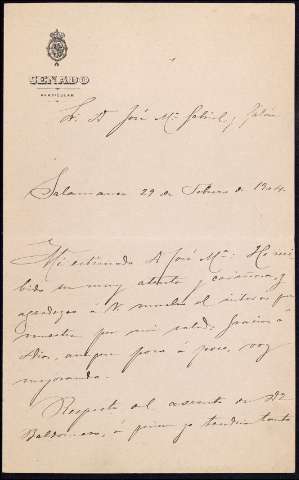 SENADO
PARTICULAR
Sr. D. José Mª Gabriel y Galán
Salamanca 29 de Febrero de 1904.
Mi estimado D. José Mª: He reci
bido su muy atenta y cariñosa, y
agradezco á V. mucho el interés que
muestra por mi salud. Gracias á
Dios, aunque poco á poco, voy
mejorando.
Respecto al asunto de Dº
Baldomero, á quien ya tendrá